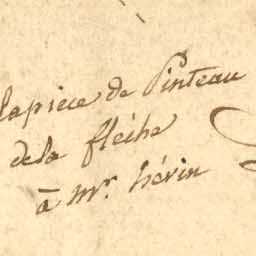 la pièce de Pinteau
de la flèche
à mr. hévin